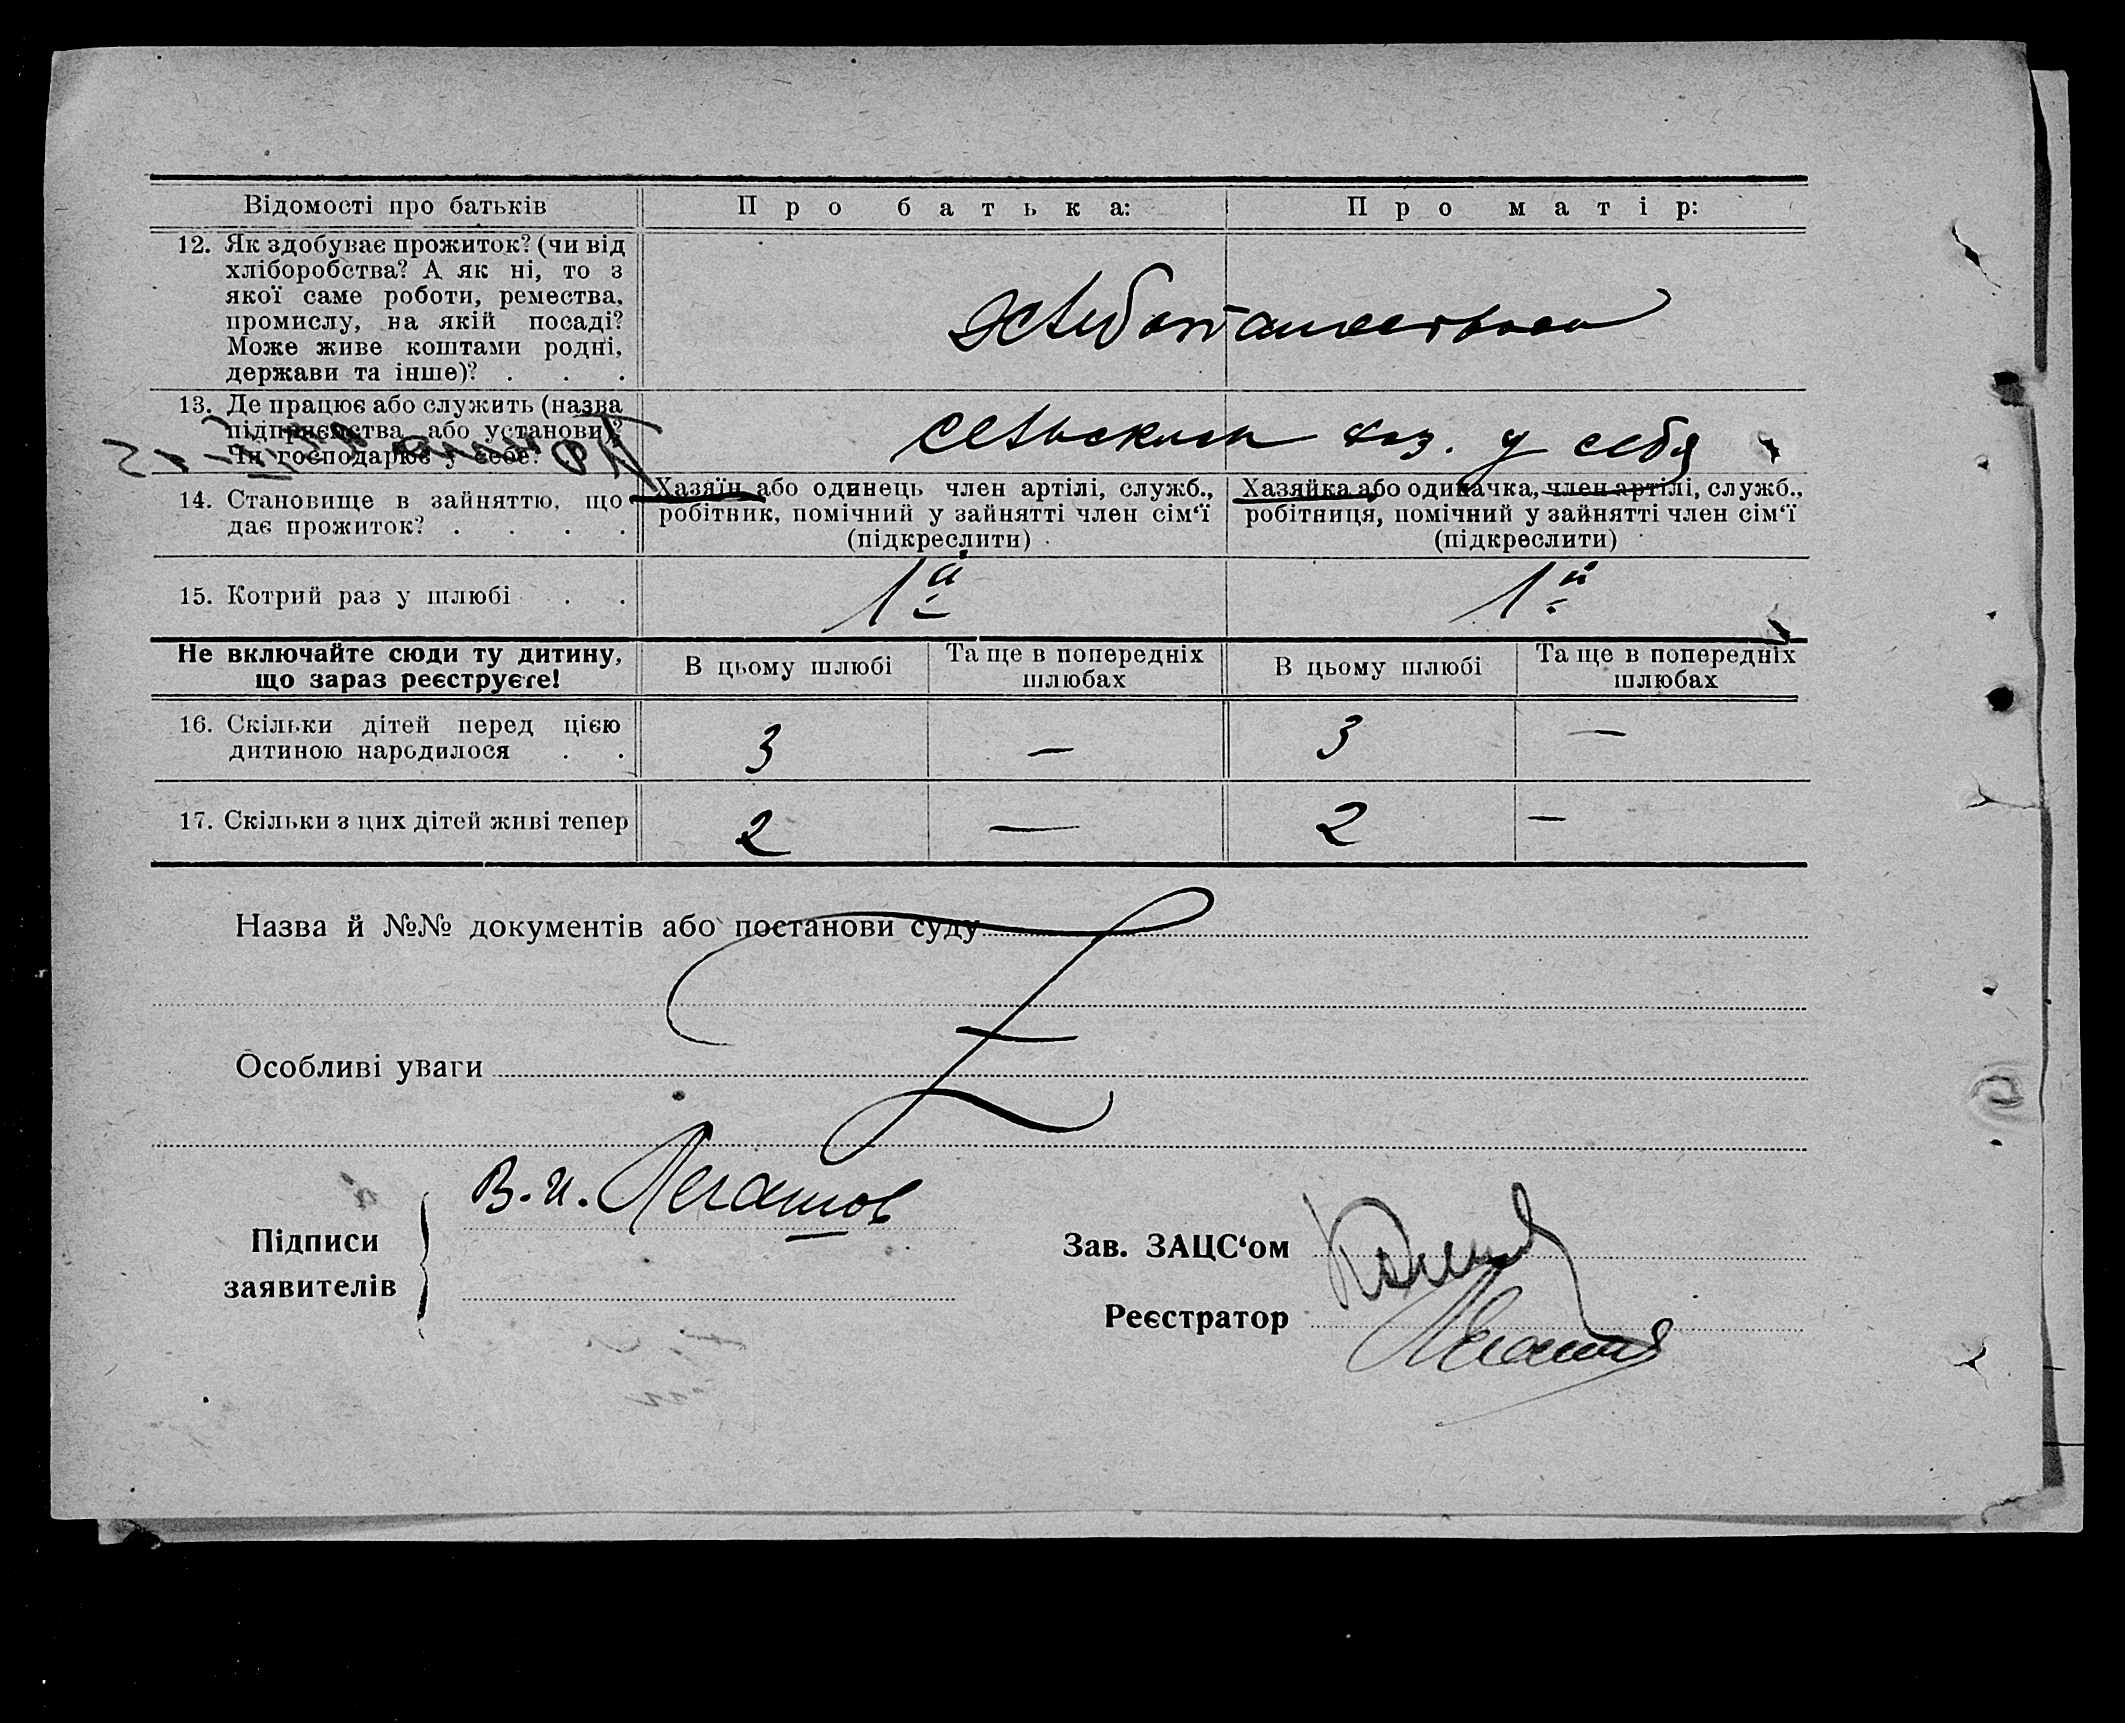 Відомості про батьків
Про батька:
Про матір:
12. Як здобуває прожиток? (чи від
хліборобства? А як ні, то з
якої саме роботи, ремества,
промислу, на якій посаді?
Може живе коштами родні,
держави та інше)? . . .
Хлебопашеством
13. Де працює або служить (назва
підприємства або установи)?
Чи господарює у себе?
сельским хоз. у себя
14. Становище в зайняттю, що
дає прожиток? . . . .
Хазяїн або одинець член артілі, служб.,
робітник, помічний у зайнятті член сім‘ї
(підкреслити)
Хазяйка або одиначка, член артілі, служб.,
робітниця, помічний у зайнятті член сім‘ї
(підкреслити)
15. Котрий раз у шлюбі . .
1й
1й
Не включайте сюди ту дитину,
що зараз реєструєте!
В цьому шлюбі
Та ще в попередніх
шлюбах
В цьому шлюбі
Та ще в попередніх
шлюбах
16. Скільки дітей перед цією
дитиною народилося . .
3
—
3
—
17. Скільки з цих дітей живі тепер
2
—
2
—
Назва й №№ документів або постанови суду
Особливі уваги
Підписи
заявителів
В. И.
Зав. ЗАЦС‘ом
Реєстратор